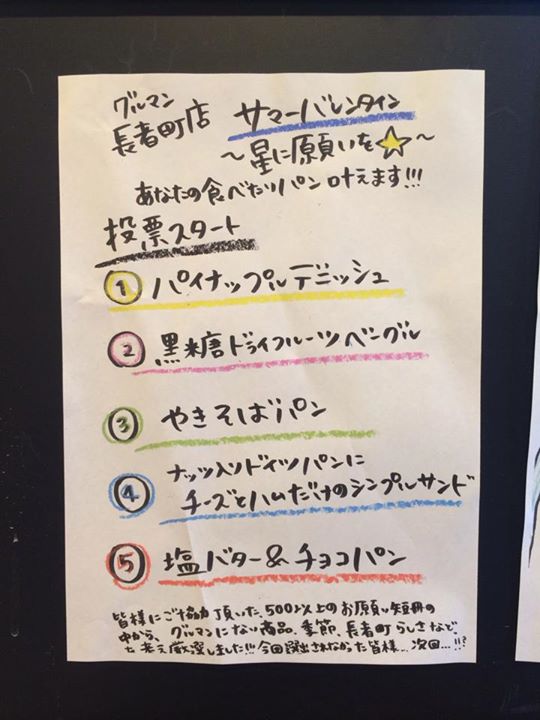 グルマン
長者町店 サマーバレンタイン
～星に願いを☆～
あなたの食べたいパン叶えます!!!
投票スタート
① パイナップルデニッシュ
② 黒糖ドライフルーツベーグル
③ やきそばパン
④ ナッツ入りドイツパンに
チーズとハムだけのシンプルサンド
⑤ 塩バター&チョコパン
皆様にご協力頂いた、500以上のお願い短冊の
中から、グルマンにない商品、季節、長者町らしさなど
を考え厳選しました!!! 今回選出されなかった皆様…次回…!!?